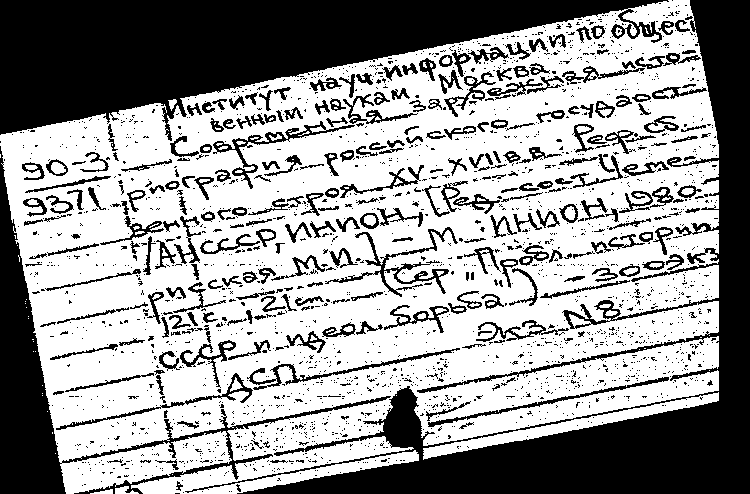 Институт науч. информации по общест
венным наукам. Москва
90-3 Современная зарубежная исто-
9371 риография российского государст-
венного строя XV-XVIIвв: Реф. сб.
/АНСССР, ИНИОН; [Ред.-сост. Чеме-
рисская М.И.] – М.: ИНИОН, 1980.-
121с.; 21см. (Сер „Пробл. истории
СССР и идеол. борьба") – 300экз
ДСП. Экз. N8.